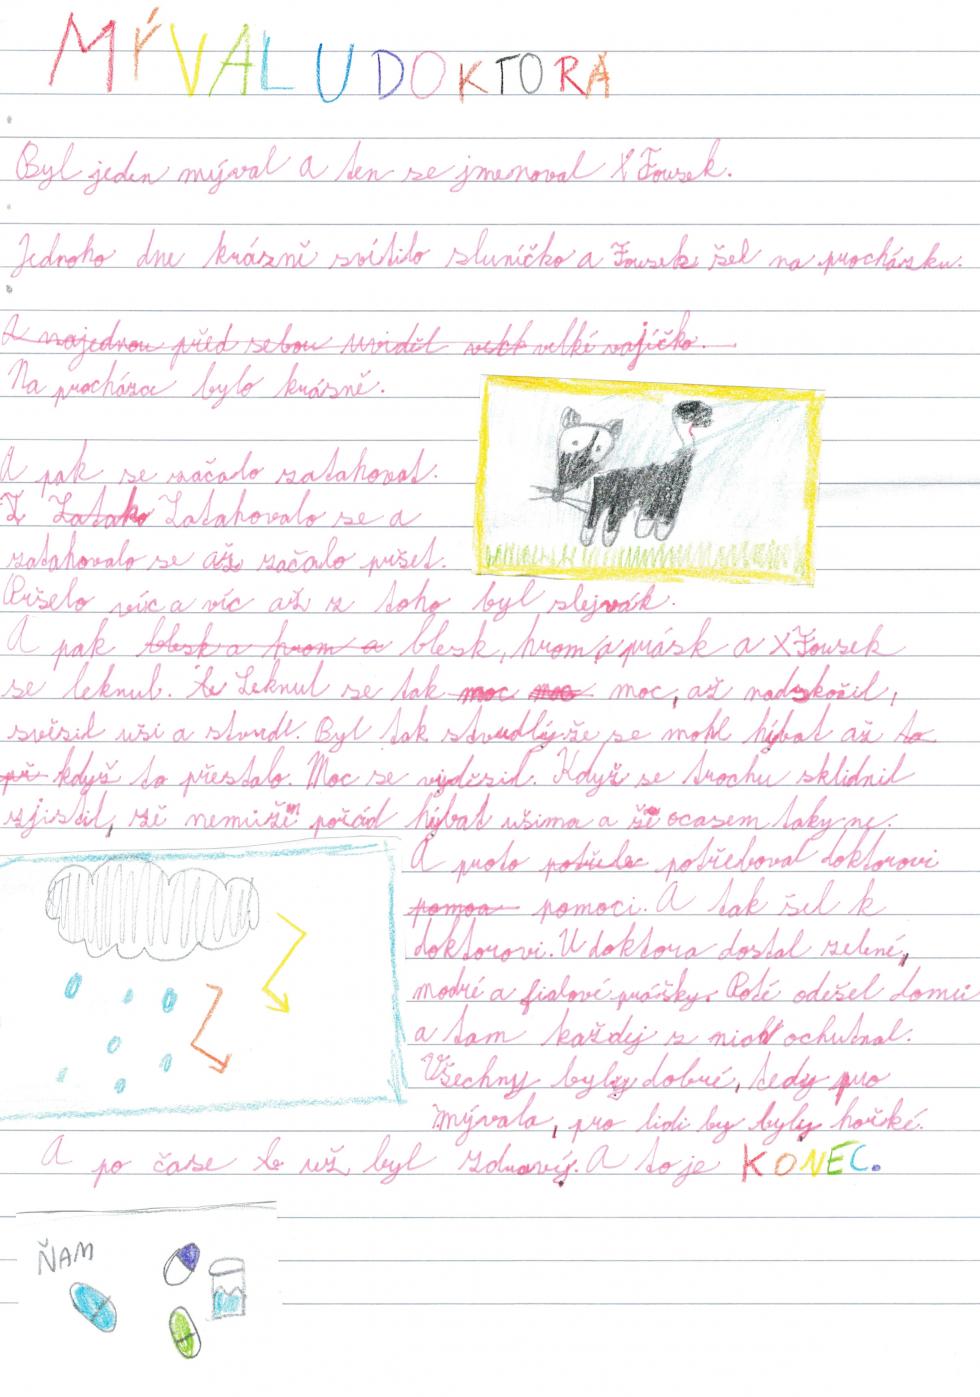 MÝVAL U DOKTORA
Byl jeden mýval a ten se jmenoval Fousek.
Jednoho dne krásně svítilo sluníčko a Fousek šel na procházku.
A najednou před sebou uviděl velké vajíčko.
Na procházce bylo krásně.
A pak se začalo zatahovat.
Zatahovalo se a
zatahovalo se až začalo pršet.
Pršelo víc a víc až z toho byl slejvák.
A pak blesk a hrom a blesk, hrom a prásk a Fousek
se leknul. Leknul se tak moc moc moc, až nadskočil,
svěsil uši a stvrdl. Byl tak stvrdlý že se mohl hýbat až to
př když to přestalo. Moc se vyděsil. Když se trochu sklidnil
zjistil, že nemůže pořád hýbat ušima a ocasem taky ne.
A proto potřeboval doktorovi
pomoci. A tak šel k
doktorovi. U doktora dostal zelené,
modré a fialové prášky. Poté odešel domu
a tam každej z nich ochutnal.
Všechny byly dobré, tedy pro
mývala, pro lidi by byly hořké.
A po čase už byl zdravý. A to je KONEC.
ŇAM